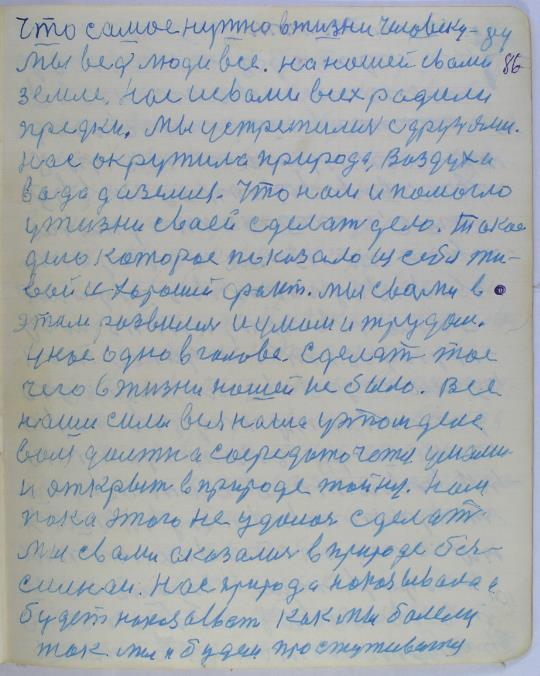 Что самое нужно в жизни человеку-
Мы ведь люди все. на нашей свами 86
земле. Нас и свами всех радили
предки. Мы устретилися с друзями.
Нас окружила природа, Воздух и
вада да земля. Что нам и помогло
у жизни своей сделать дело. Такое
дело которое показало из себя жи-
вой и хороший факт. мы свами в
этам развился и умом и трудом.
У нас одно в галове. Сделат тое
чего в жизни нашей не было. Все
наши силы вся наша у этом деле
воля должна сосредоточется умами
и открыт в природе тайну. Нам
пока этого не удолоя сделат
мы свами аказался в природе бес-
силнаи. Нас природа наказывала и
будет наказыват как мы балели
так мы и будем простуживатся